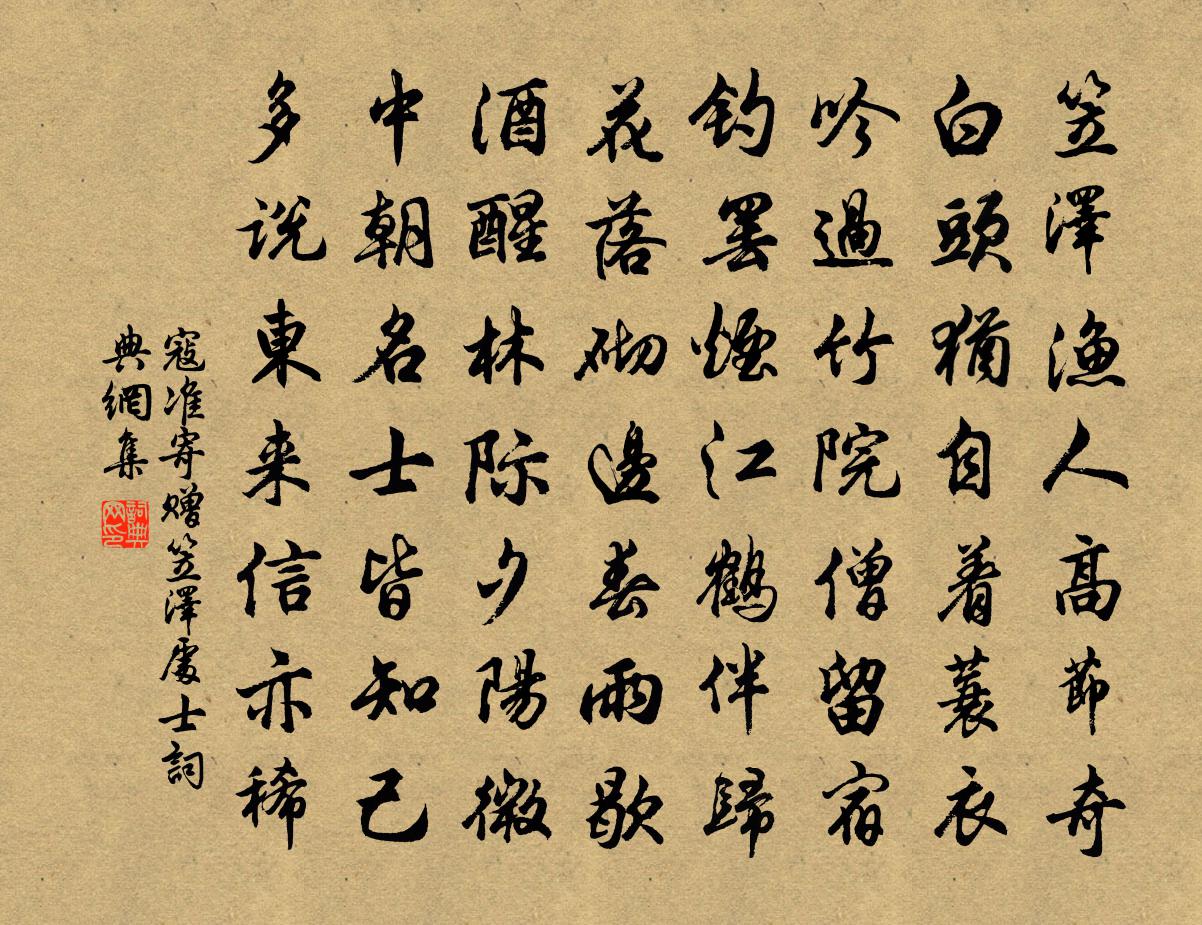 笠澤漁人高節奇
白頭猶自着蓑衣
吟過竹院僧留宿
釣罢煙江鶴伴歸
花落砌邊春雨歇
酒醒林际夕陽微
中朝名士皆知己
多说東来信亦稀
寇准寄赠笠澤處士詞
典網集
詞典
网印